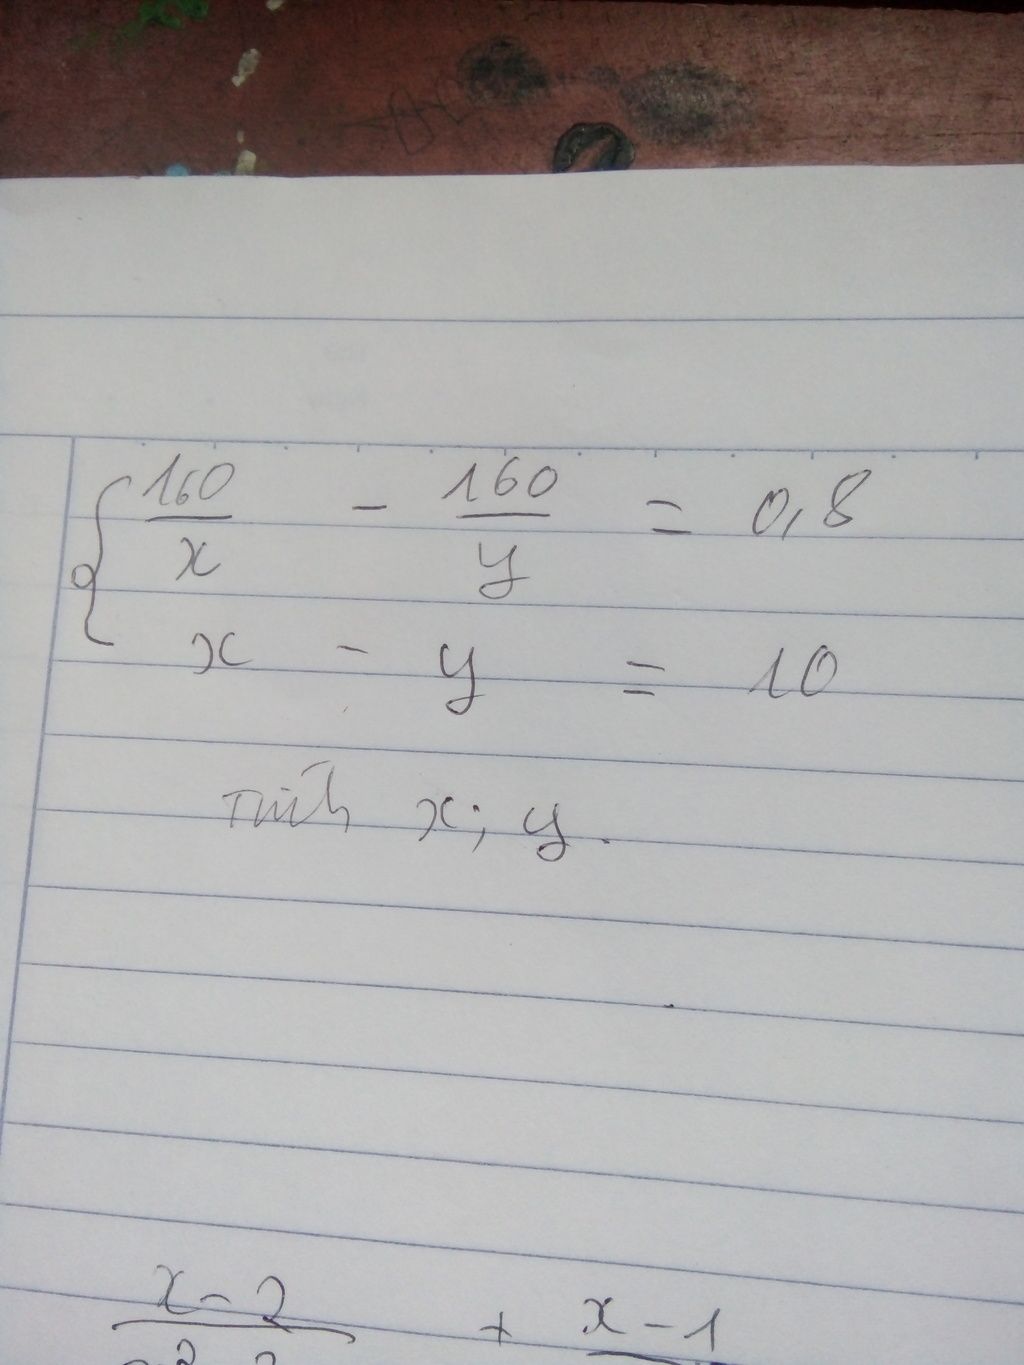 160/x - 160/y = 0,8
x - y = 10
Tính x; y.
x-2 + x-1